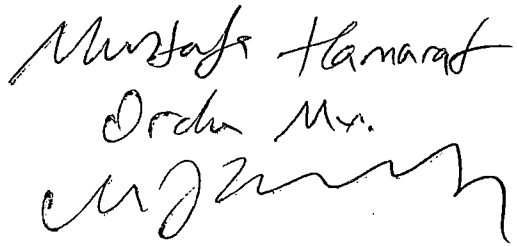 Mustafa Hamarat
Ordu Mv.